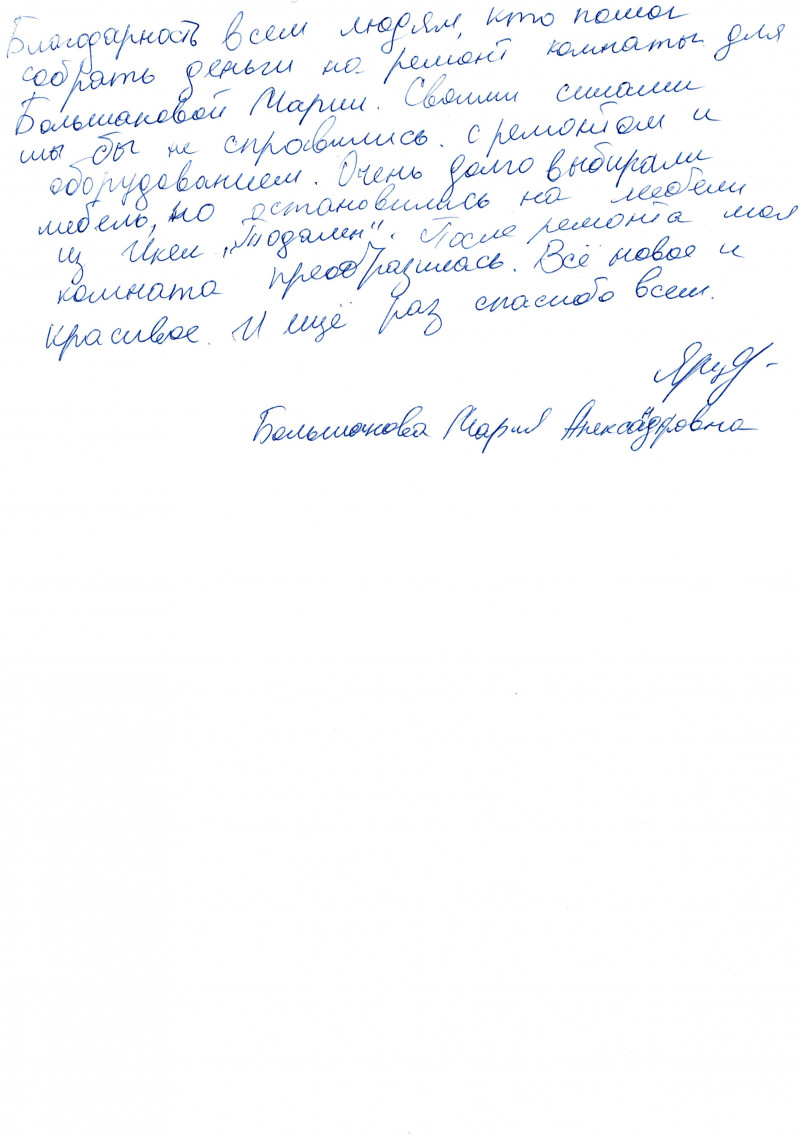 Благодарность всем людям, кто помог
собрать деньги на ремонт комнаты для
Большаковой Марии. Своими силами
мы бы не справились с ремонтом и
оборудованием. Очень долго выбирали
мебель, но остановились на мебели
из Икеи „Тодален". После ремонта моя
комната преобразилась. Всё новое и
красивое. И ещё раз спасибо всем.
Большакова Мария Александровна